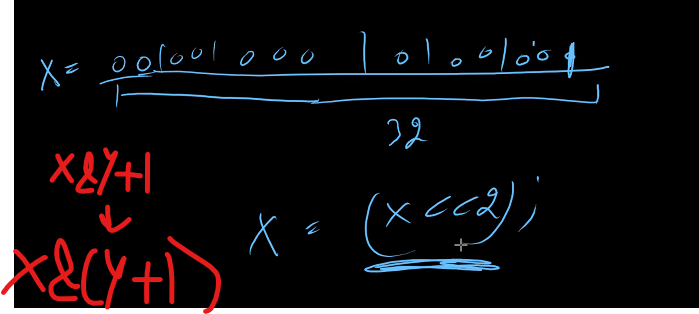 X = 001001000 101001001
32
X&Y+1
X = (X<<2);
X&(Y+1)